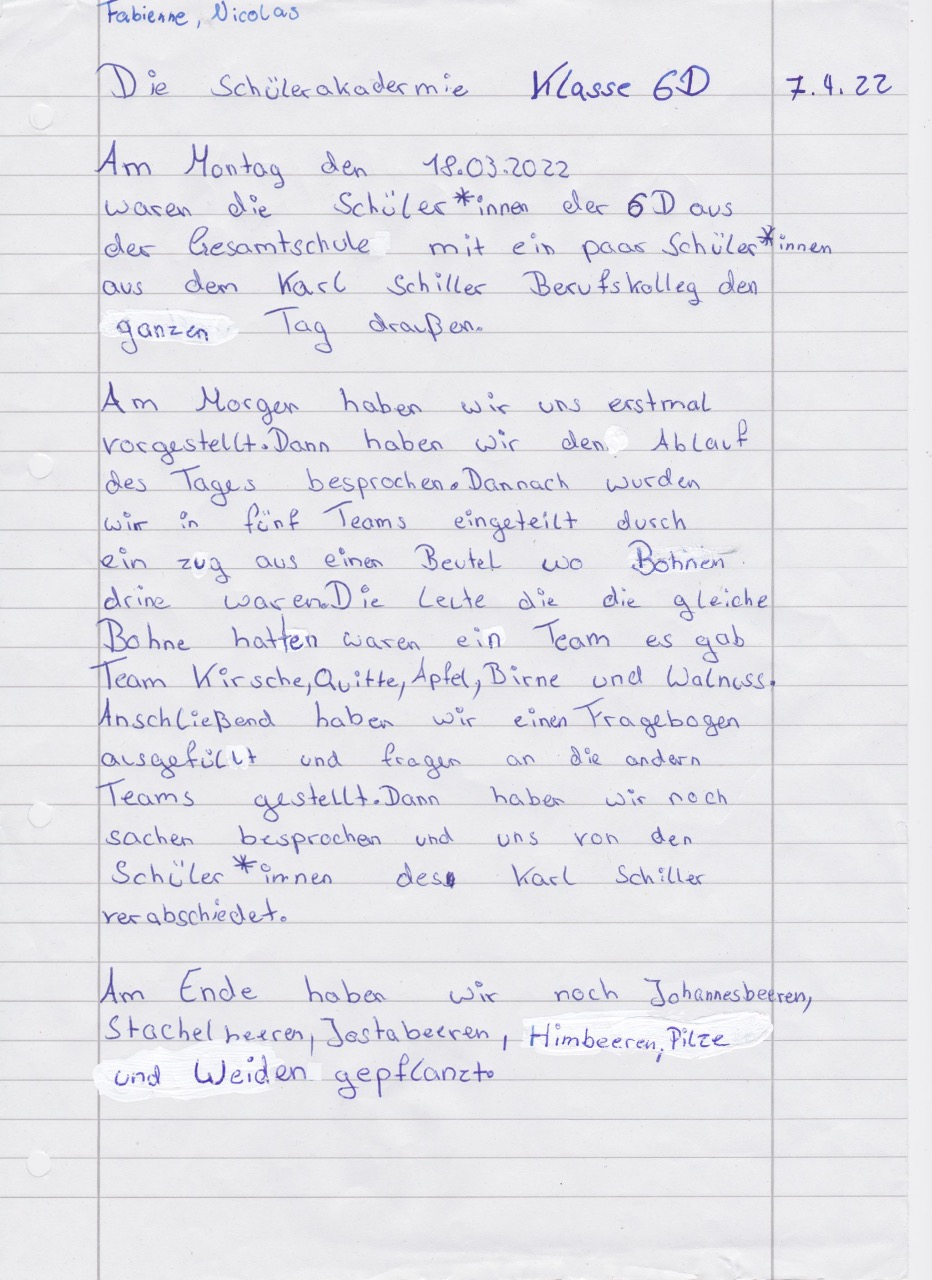 Fabienne, Nicolas
Die Schülerakadermie Klasse 6D 7.4.22
Am Montag den 18.03.2022
waren die Schüler*innen der 6D aus
der Gesamtschule mit ein paar Schüler*innen
aus dem Karl Schiller Berufskolleg den
ganzen Tag draußen.
Am Morgen haben wir uns erstmal
vorgestellt.Dann haben wir den Ablauf
des Tages besprochen.Dannach wurden
wir in fünf Teams eingeteilt durch
ein zug aus einen Beutel wo Bohnen
drine waren.Die Leute die die gleiche
Bohne hatten waren ein Team es gab
Team Kirsche,Quitte,Apfel,Birne und Walnuss.
Anschließend haben wir einen Fragebogen
ausgefüllt und fragen an die andern
Teams gestellt.Dann haben wir noch
sachen besprochen und uns von den
Schüler*innen des Karl Schiller
verabschiedet.
Am Ende haben wir noch Johannesbeeren,
Stachelbeeren, Jostabeeren, Himbeeren, Pilze
und Weiden gepflanzt.